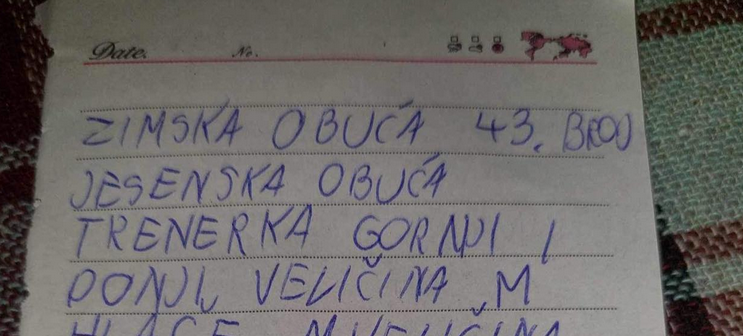 Date. No.
ZIMSKA OBUĆA 43. BROJ
JESENSKA OBUĆA
TRENERKA GORNJI I
DONJI, VELIČINA M
HLAČE M VELIČINA